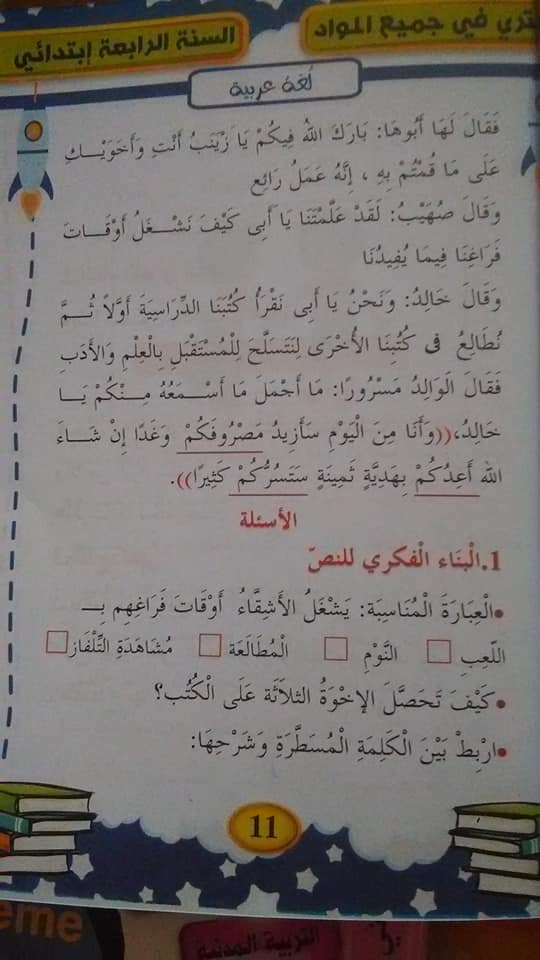 تري في جميع المواد
السنة الرابعة إبتدائي
لُغَة عربية
فَقَالَ لَهَا أَبُوهَا: بَارَكَ اللهُ فِيكُمْ يَا زَيْنَبُ أَنْتِ وَأَخَوَيْكِ
عَلَى مَا قُمْتُمْ بِهِ ، إِنَّهُ عَمَلٌ رَائِع
وَقَالَ صُهَيْبُ: لَقَدْ عَلَّمْتَنَا يَا أَبِى كَيْفَ نَشْغَلُ أَوْقَاتَ
فَرَاغِنَا فِيمَا يُفِيدُنَا
وَقَالَ خَالِدُ: وَنَحْنُ يَا أَبِى نَقْرَأُ كُتُبَنَا الدِّرَاسِيَةَ أَوَّلاً ثُمَّ
نُطَالِعُ فى كُتُبِنَا الأُخْرَى لِنَتَسَلَّحَ لِلْمُسْتَقْبَلِ بِالْعِلْمِ وَالأَدَبِ
فَقَالَ الْوَالِدُ مَسْرُورًا: مَا أَجْمَلَ مَا أَسْمَعُهُ مِنْكُمْ يَا
خَالِدُ،((وَأَنَا مِنَ الْيَوْمِ سَأَزِيدُ مَصْرُوفَكُمْ وَغَدًا إِنْ شَاءَ
الله أَعِدُكُمْ بِهَدِيَّةٍ ثَمِينَةٍ سَتَسُرُّكُمْ كَثِيرًا)).
الأسئلة
1.الْبنَاء الْفكري للنصّ
•الْعِبَارَةَ الْمُنَاسِبَة: يَشْغَلُ الأَشِقَّاءُ أَوْقَاتَ فَرَاغِهِم بِـ
اللّعِبِ النَّوْمِ الْمُطَالَعَة مُشَاهَدَةِ التِّلْفَازِ
•كَيْفَ تَحَصَّلَ الإِخْوَةُ الثلاَثَة عَلَى الْكُتُب؟
•ارْبِطْ بَيْنَ الْكَلِمَةِ الْمُسَطَّرَةِ وَشَرْحِهَا:
11
eme
التربية المدنية